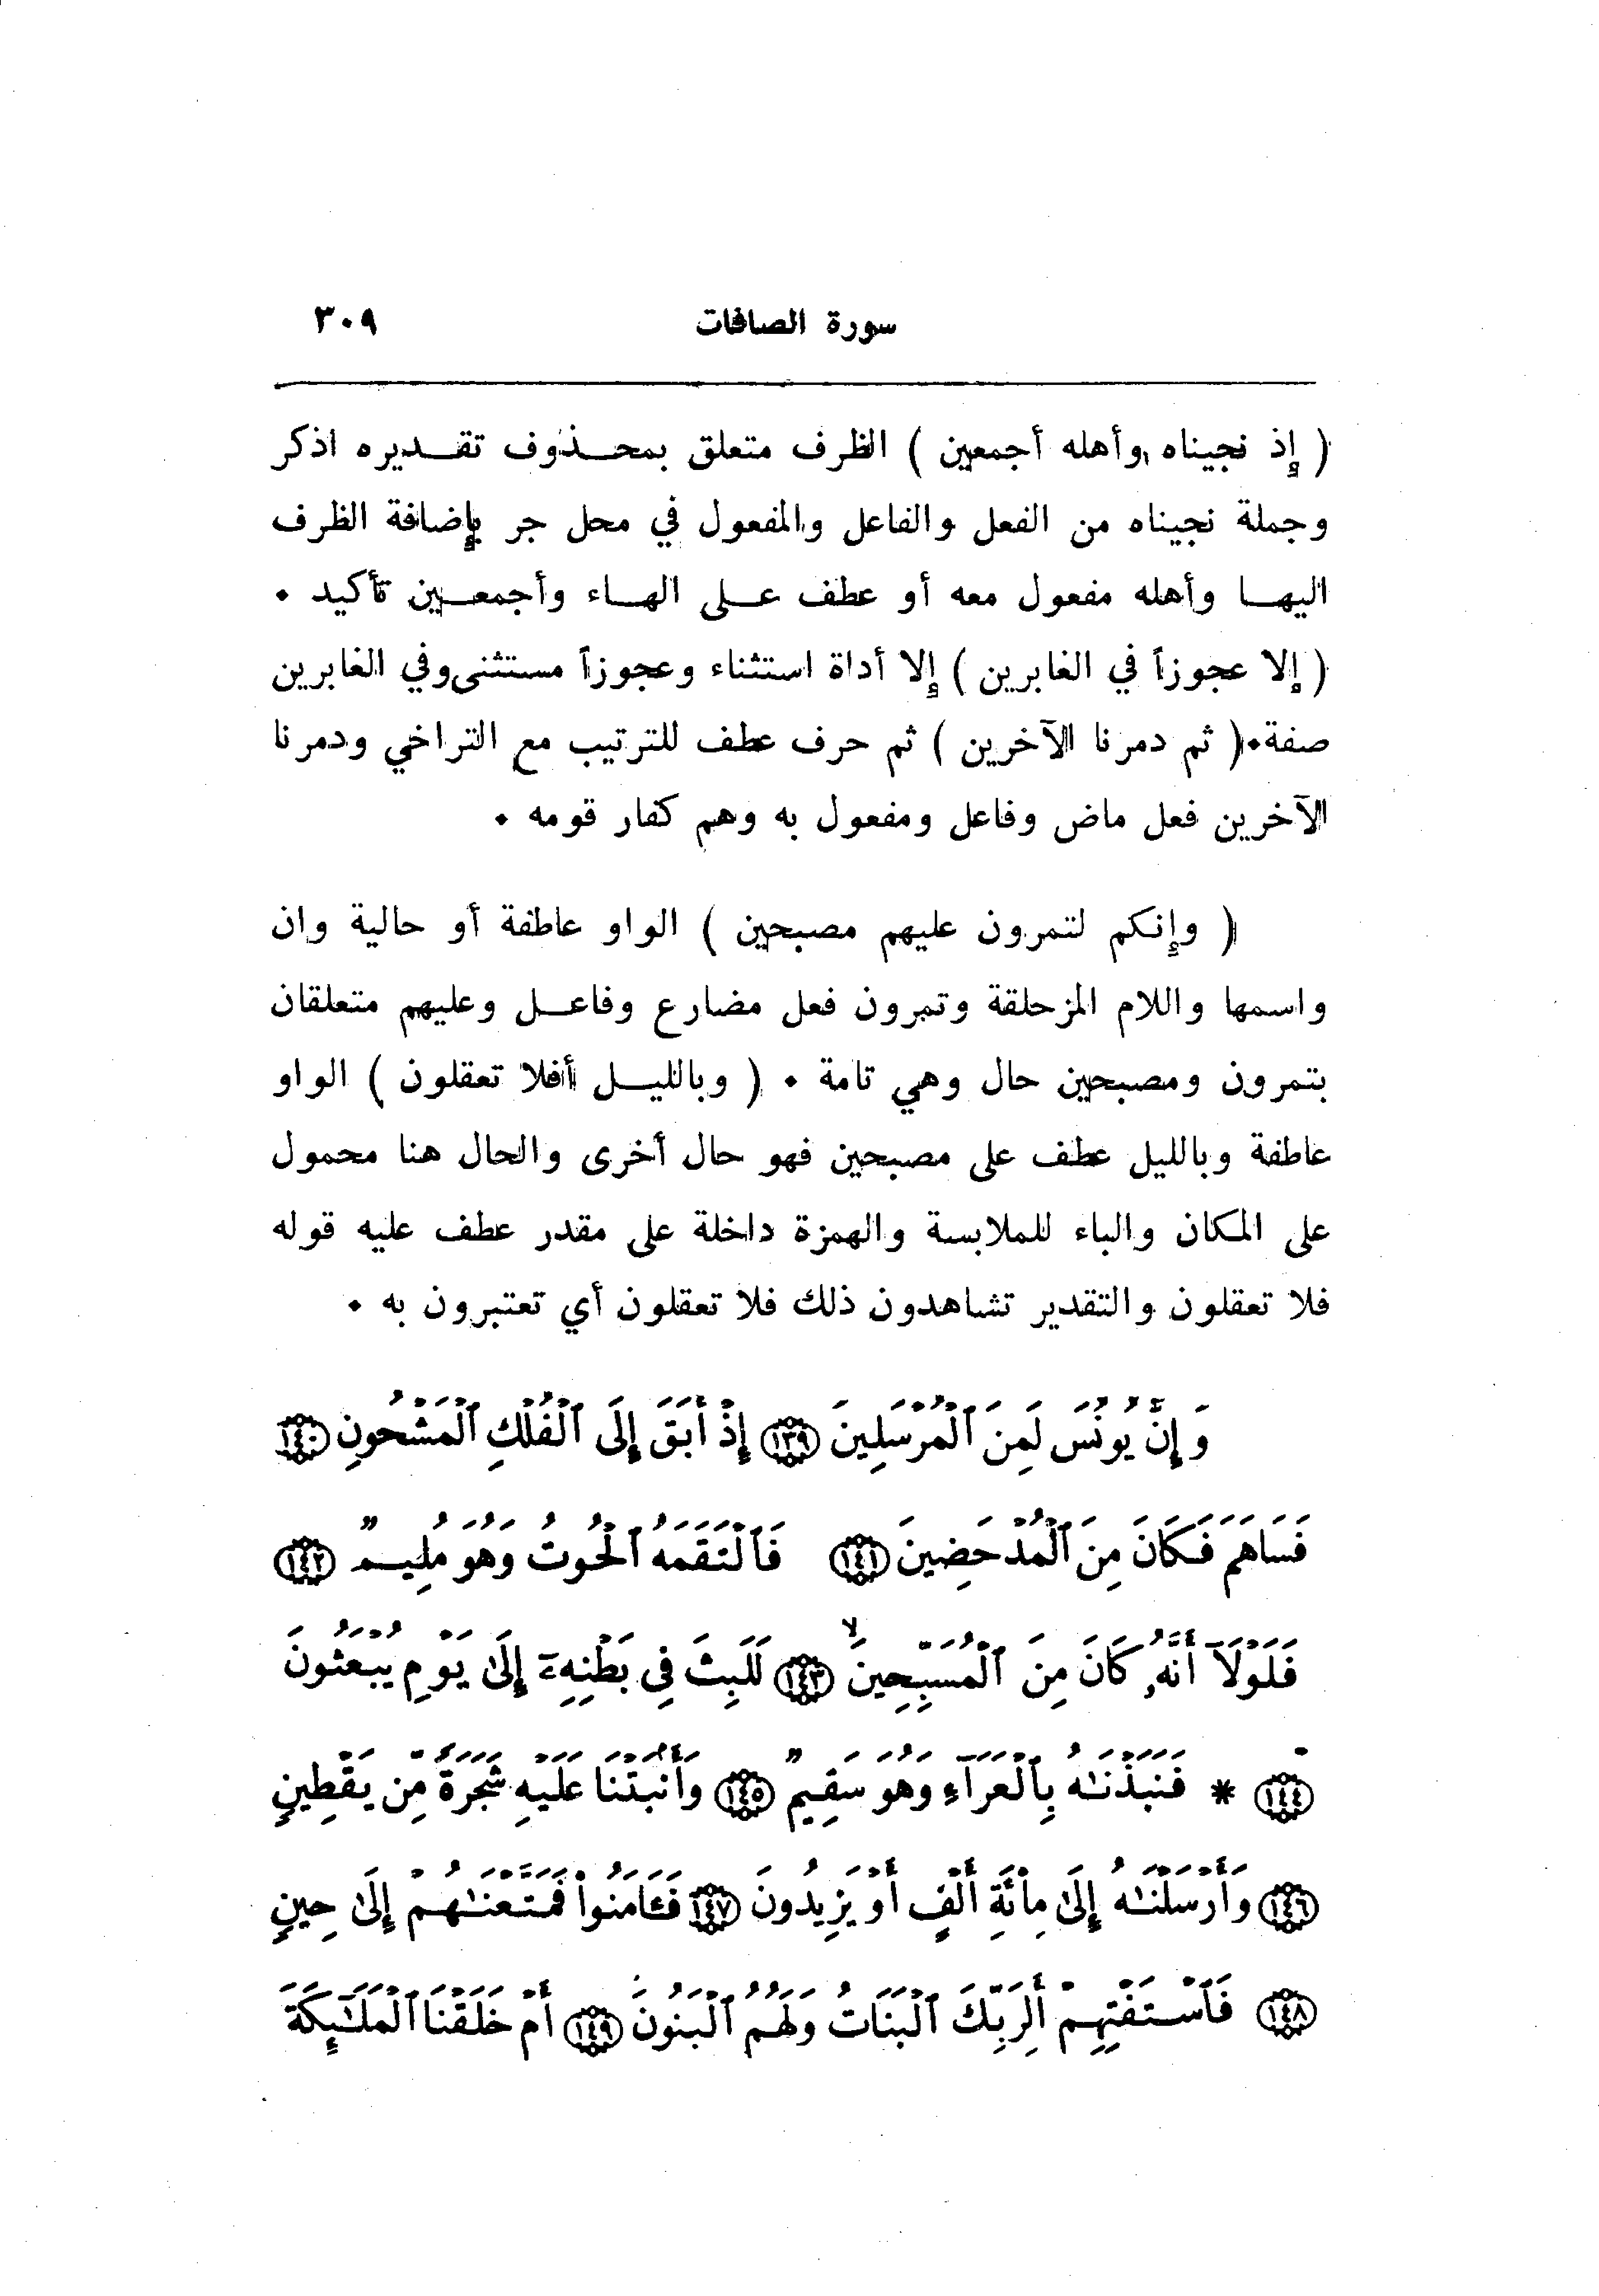 سورة الصافات ٣٠٩
( إذ نجيناه وأهله أجمعين ) الظرف متعلق بمحذوف تقديره اذكر
وجملة نجيناه من الفعل والفاعل والمفعول في محل جر بإضافة الظرف
اليها وأهله مفعول معه أو عطف على الهاء وأجمعين تأكيد .
( إلا عجوزاً في الغابرين ) إلا أداة استثناء وعجوزاً مستثنى وفي الغابرين
صفة. ( ثم دمرنا الآخرين ) ثم حرف عطف للترتيب مع التراخي ودمرنا
الآخرين فعل ماض وفاعل ومفعول به وهم كفار قومه .
( وإنكم لتمرون عليهم مصبحين ) الواو عاطفة أو حالية وان
واسمها واللام المزحلقة وتمرون فعل مضارع وفاعل وعليهم متعلقان
بتمرون ومصبحين حال وهي تامة . ( وبالليل أفلا تعقلون ) الواو
عاطفة وبالليل عطف على مصبحين فهو حال أخرى والحال هنا محمول
على المكان والباء للملابسة والهمزة داخلة على مقدر عطف عليه قوله
فلا تعقلون والتقدير تشاهدون ذلك فلا تعقلون أي تعتبرون به .
وَإِنَّ يُونُسَ لَمِنَ ٱلْمُرْسَلِينَ ﴿١٣٩﴾ إِذْ أَبَقَ إِلَى ٱلْفُلْكِ ٱلْمَشْحُونِ ﴿١٤٠﴾
فَسَاهَمَ فَكَانَ مِنَ ٱلْمُدْحَضِينَ ﴿١٤١﴾ فَٱلْتَقَمَهُ ٱلْحُوتُ وَهُوَ مُلِيمٌ ﴿١٤٢﴾
فَلَوْلَآ أَنَّهُۥ كَانَ مِنَ ٱلْمُسَبِّحِينَ ۙ ﴿١٤٣﴾ لَلَبِثَ فِى بَطْنِهِۦٓ إِلَىٰ يَوْمِ يُبْعَثُونَ
﴿١٤٤﴾ * فَنَبَذْنَـٰهُ بِٱلْعَرَآءِ وَهُوَ سَقِيمٌ ﴿١٤٥﴾ وَأَنۢبَتْنَا عَلَيْهِ شَجَرَةً مِّن يَقْطِينٍ
﴿١٤٦﴾ وَأَرْسَلْنَـٰهُ إِلَىٰ مِا۟ئَةِ أَلْفٍ أَوْ يَزِيدُونَ ﴿١٤٧﴾ فَـَٔامَنُوا۟ فَمَتَّعْنَـٰهُمْ إِلَىٰ حِينٍ
﴿١٤٨﴾ فَٱسْتَفْتِهِمْ أَلِرَبِّكَ ٱلْبَنَاتُ وَلَهُمُ ٱلْبَنُونَ ﴿١٤٩﴾ أَمْ خَلَقْنَا ٱلْمَلَـٰٓئِكَةَ